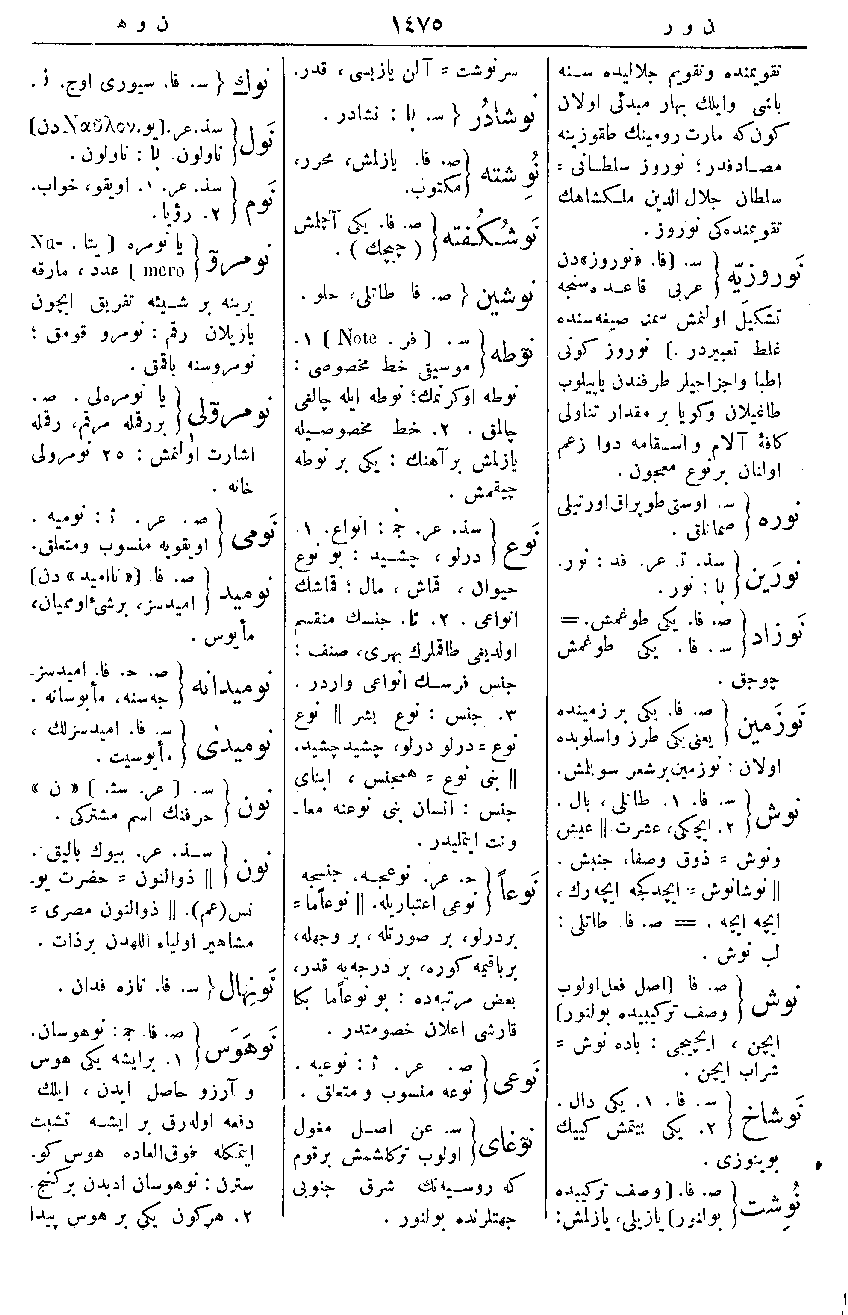 ن و ر
١٤٧٥
ن و ه
تقويمنده وتقويم جلاليده سنه
باشی وايلك بهار مبدئی اولان
كون كه مارت روميك طقوزينه
مصادفدر؛ نوروز سلطانی =
سلطان جلال الدين ملكشاهك
تقويمنده كی نوروز .
نوروزيّه { س. [فا. «نوروز» دن
عربی قاعده سنجه
تشكيل اولنمش سمن صيغه سنده
غلط تعبيردر.] نوروز كونی
اطبا واجزاجيلر طرفندن ياپيلوب
طاغيلان وكويا بر مقدار تناولی
كافهٔ آلام واسقامه دوا زعم
اولنان بر نوع معجون .
نوره { س. اوستی طوپراق اورتيلی
صمانلق .
نورَين { سذ. ت. عر. فد : نور.
با : نور .
نوزاد { ص. فا. يكی طوغمش. =
س. فا. يكی طوغمش
چوجق .
نَوزَمين { ص. فا. يكی بر زمينده
يعنی يكی طرز واسلوبده
اولان : نوزمين بر شعر سويلمش.
نوش { س. فا. ١. طاتلی ، بال .
٢. ايچكی، عشرت || عيش
ونوش = ذوق وصفا، جنبش .
|| نوشانوش = ايچدكجه ايچه رك ،
ايچه ايچه . == ص. فا. طاتلی :
لب نوش .
نوش { ص. فا [اصل فعل اولوب
وصف تركيبيده بولنور]
ايچن ، ايچيجی : باده نوش =
شراب ايچن .
نَوشاخ { س. فا. ١. يكی دال .
٢. يكی بيتمش كييك
بوينوزی .
نُوِشت { ص. فا. [وصف تركيبيده
بولنور] يازيلی، يازلمش:
سرنوشت = آلن يازيسی ، قدر.
نوشادُر { س. با : نشادر .
نُوِشته { ص. فا. يازلمش، محرر،
مكتوب.
نَوشُكُفته { ص. فا. يكی آچلمش
( چيچك ) .
نوشين { ص. فا طاتلی، حلو .
نوطه { س. [ فر. Note ] ١.
موسيقی خط مخصوصی :
نوطه اوكرنمك؛ نوطه ايله چالغی
چالمق . ٢. خط مخصوصيله
يازلمش بر آهنك : يكی بر نوطه
چيقمش .
نَوع { سذ. عر. جم : انواع. ١.
درلو ، چشيد : بو نوع
حيوان ، قاش ، مال ؛ قاشك
انواعی . ٢. تا. جنسك منقسم
اولديغی طاقلرك بهری، صنف :
جنس فرسك انواعی واردر .
٣. جنس : نوع بشر || نوع
نوع = درلو درلو، چشيد چشيد.
|| بنی نوع = همجنس ، ابنای
جنس : انسان بنی نوعنه معا-
ونت ايتمليدر .
نَوعاً { ح. عر. نوعجه، جنسجه
نوعی اعتباريله. || نوعاًما =
بر درلو، بر صورتله ، بر وجهله،
بر باقيمه كوره، بر درجه يه قدر،
بعض مرتبه ده : بو نوعاًما بكا
قارشی اعلان خصومتدر .
نَوعی { ص. عر. ث : نوعيه .
نوعه منسوب و متعلق .
نوغای { س. عن اصل مغول
اولوب تركلشمش بر قوم
كه روسيه نك شرق جنوبی
جهتلرنده بولنور .
نوك { س. فا. سيوری اوج. ن .
نَول { سذ. عر. [يو. Ναῦλον دن]
ناولون. با : ناولون .
نَوم { سذ. عر. ١. اويقو، خواب.
٢. رؤيا.
نومرو { يا نومره [ ايتا . Nu-
mero ] عدد ، مارقه
يرينه بر شيئه تفريق ايچون
يازيلان رقم : نومرو قومق ؛
نومروسنه باقمق .
نومرولی { يا نومره لی . ص.
بر رقمله مرقم، رقمله
اشارت اولنمش : ٢٥ نومرولی
خانه .
نَومی { ص. عر. ث : نوميه .
اويقويه منسوب ومتعلق.
نوميد { ص. فا. [«نااميد» دن]
اميدسز، بر شیء اومميان،
مأيوس .
نوميدانه { ص. ح. فا. اميدسز-
جه سنه، مأيوسانه .
نوميدی { س. فا. اميدسزلك ،
مأيوسيت .
نون { س. [ عر. سذ. ] « ن »
حرفنك اسم مشتركی .
نون { سذ. عر. بيوك باليق.
|| ذوالنون = حضرت يو-
نس(عم). || ذوالنون مصری =
مشاهير اولياء اللهدن بر ذات .
نَونِهال { س. فا. تازه فدان .
نَوهَوَس { ص. فا. جم : نوهوسان.
١. بر ايشه يكی هوس
و آرزو حاصل ايدن ، ايلك
دفعه اوله رق بر ايشه تشبث
ايتمكله فوق العاده هوس كو-
سترن : نوهوسان ادبدن بر كنج.
٢. هر كون يكی بر هوس پيدا